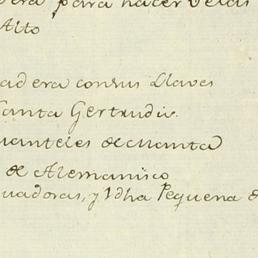 era para hacer velas
Alto
adera con sus Llaves
Santa Gertrudis.
manteles de Manta
de Alemanisco
uadoras, y Ydha Pequena